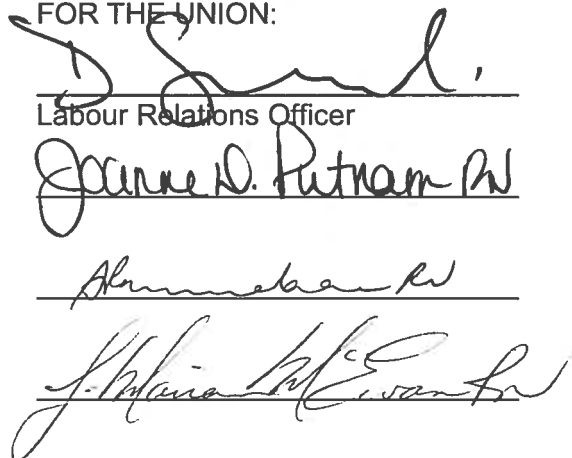 FOR THE UNION:
D
Labour Relations Officer
Joanne D. Putnam RN
RN
J. Marian McEwan RN